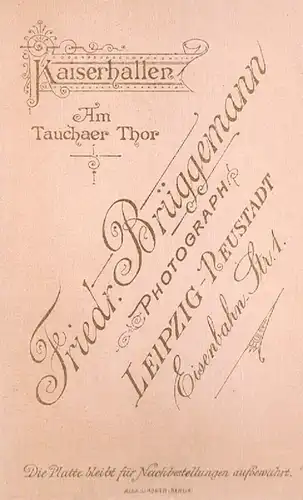 Kaiserhallen
Am
Tauchaer Thor
Friedr. Brüggemann
PHOTOGRAPH
LEIPZIG-NEUSTADT
Eisenbahn-Str. 1.
Die Platte bleibt für Nachbestellungen aufbewahrt.